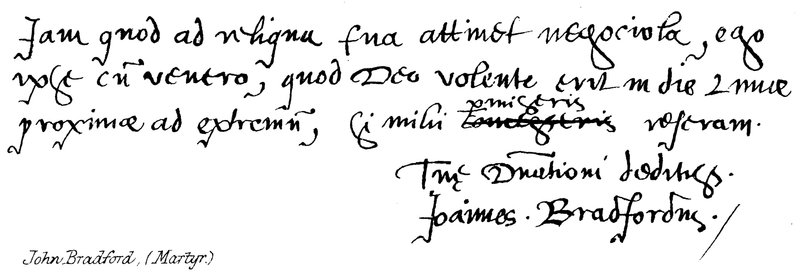 Jam quod ad reliqua sua attinet negociola, ego
ipse cū venero, quod Deo volente erit in die Lunæ
pmiseris
proximæ ad extremū, si mihi referam.
Tuę Dn̄ationi deditiss.
Joannes. Bradfordus./
John Bradford, (Martyr.)